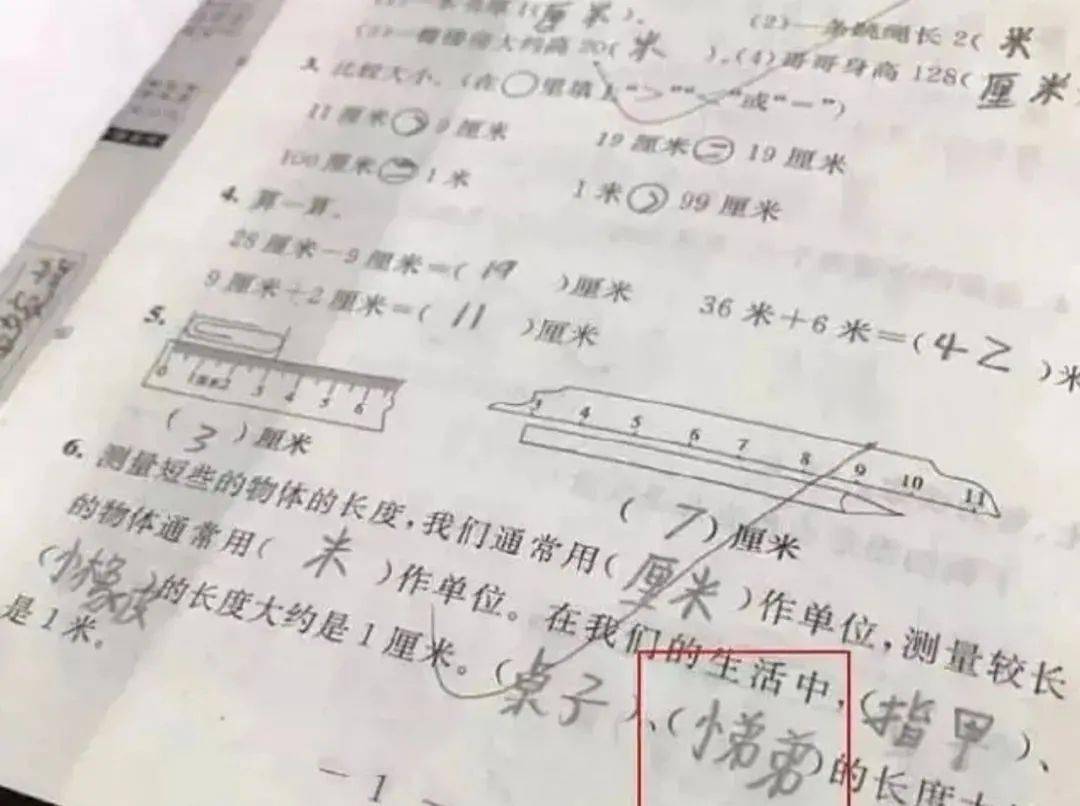 (2)一条跳绳长 2( 米
(3)一幢楼房大约高 20( 米 )。(4)哥哥身高 128( 厘米
3. 比较大小。(在○里填上“>”“<”或“=”)
11 厘米 > 9 厘米 19 厘米 = 19 厘米
100 厘米 = 1 米 1 米 > 99 厘米
4. 算一算。
28 厘米-9 厘米=( 19 )厘米 36 米+6 米=( 42 )米
9 厘米+2 厘米=( 11 )厘米
5.
0 1厘米2 3 4 5 6
3 4 5 6 7 8 9 10 11
( 3 )厘米 ( 7 )厘米
6. 测量短些的物体的长度,我们通常用( 厘米 )作单位,测量较长
的物体通常用( 米 )作单位。在我们的生活中,(指甲)、
(小橡皮)的长度大约是 1 厘米。(桌子)、(小弟弟)的长度大
是 1 米。
- 1 -